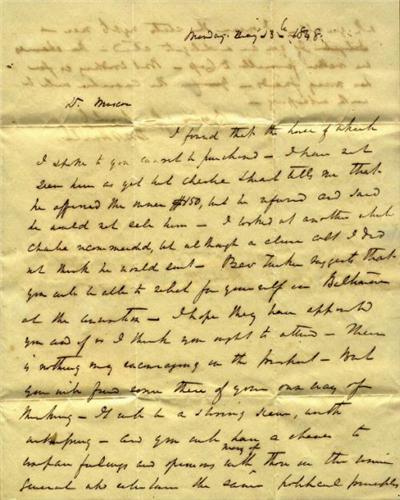 Monday May 13th 1848.
Dr. Mason
I found that the horse of which
I spoke to you cannot be purchased – I have not
seen him as yet but Charlie tells me that
he offered the owner $150, but he refused and said
he would not sell him – I looked at another which
Charlie recommended, but although a clever colt I did
not think he would suit – Bev Tucker suggests that
you will be able to select for yourself in Baltimore
at the convention – I hope they have appointed
you and if so I think you ought to attend – There
is nothing very encouraging in the prospect – But
you will find some there of your own way of
thinking – It will be a stirring scene, worth
and you will have a chance to
compare feelings and opinions with those in the
general who entertain the same political principles